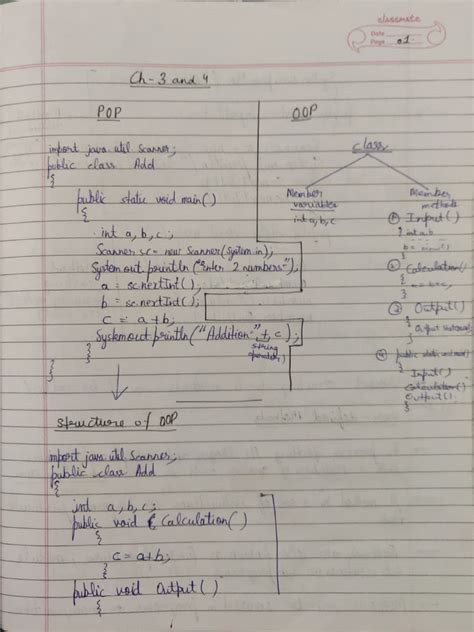 classmate
Date
Page 01
Ch-3 and 4
POP
import java.util.Scanner;
public class Add
{
public static void main()
{
int a, b, c;
Scanner sc = new Scanner(System.in);
System.out.println("Enter 2 numbers");
a = sc.nextInt();
b = sc.nextInt();
c = a+b;
System.out.println("Addition"+ c);
string
operator
}
}
OOP
class
Member
variables
int a, b, c
Member
methods
① Input()
{ int a, b
}
② Calculation()
{
}
③ Output()
{
}
④ public static void main()
{
Input()
Calculation()
Output()
}
Structure of OOP
mport java.util.Scanner;
public class Add
{
int a, b, c;
public void Calculation()
{
c = a+b;
}
public void Output()
{